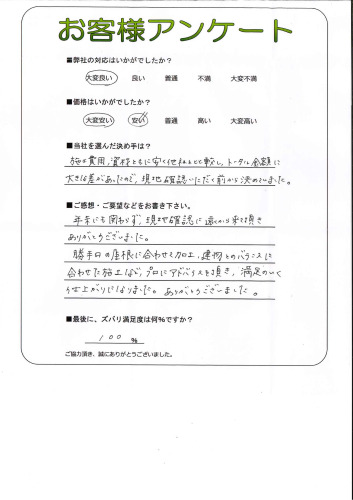 お客様アンケート
■弊社の対応はいかがでしたか？
大変良い 良い 普通 不満 大変不満
■価格はいかがでしたか？
大変安い 安い 普通 高い 大変高い
■当社を選んだ決め手は？
施工費用,資材ともに安く他社とと比較し,トータル金額に
大きな差があったので,現地確認いただく前から決めていました。
■ご感想・ご要望などをお書き下さい。
年末にも関わらず,現地確認に遠くから来て頂き
ありがとうございました。
勝手口の屋根に合わせて加工,建物とのバランスに
合わせた施工など,プロにアドバイスを頂き,満足のいく
仕上がりになりました。ありがとうございました。
■最後に、ズバリ満足度は何％ですか？
100 %
ご協力頂き、誠にありがとうございました。